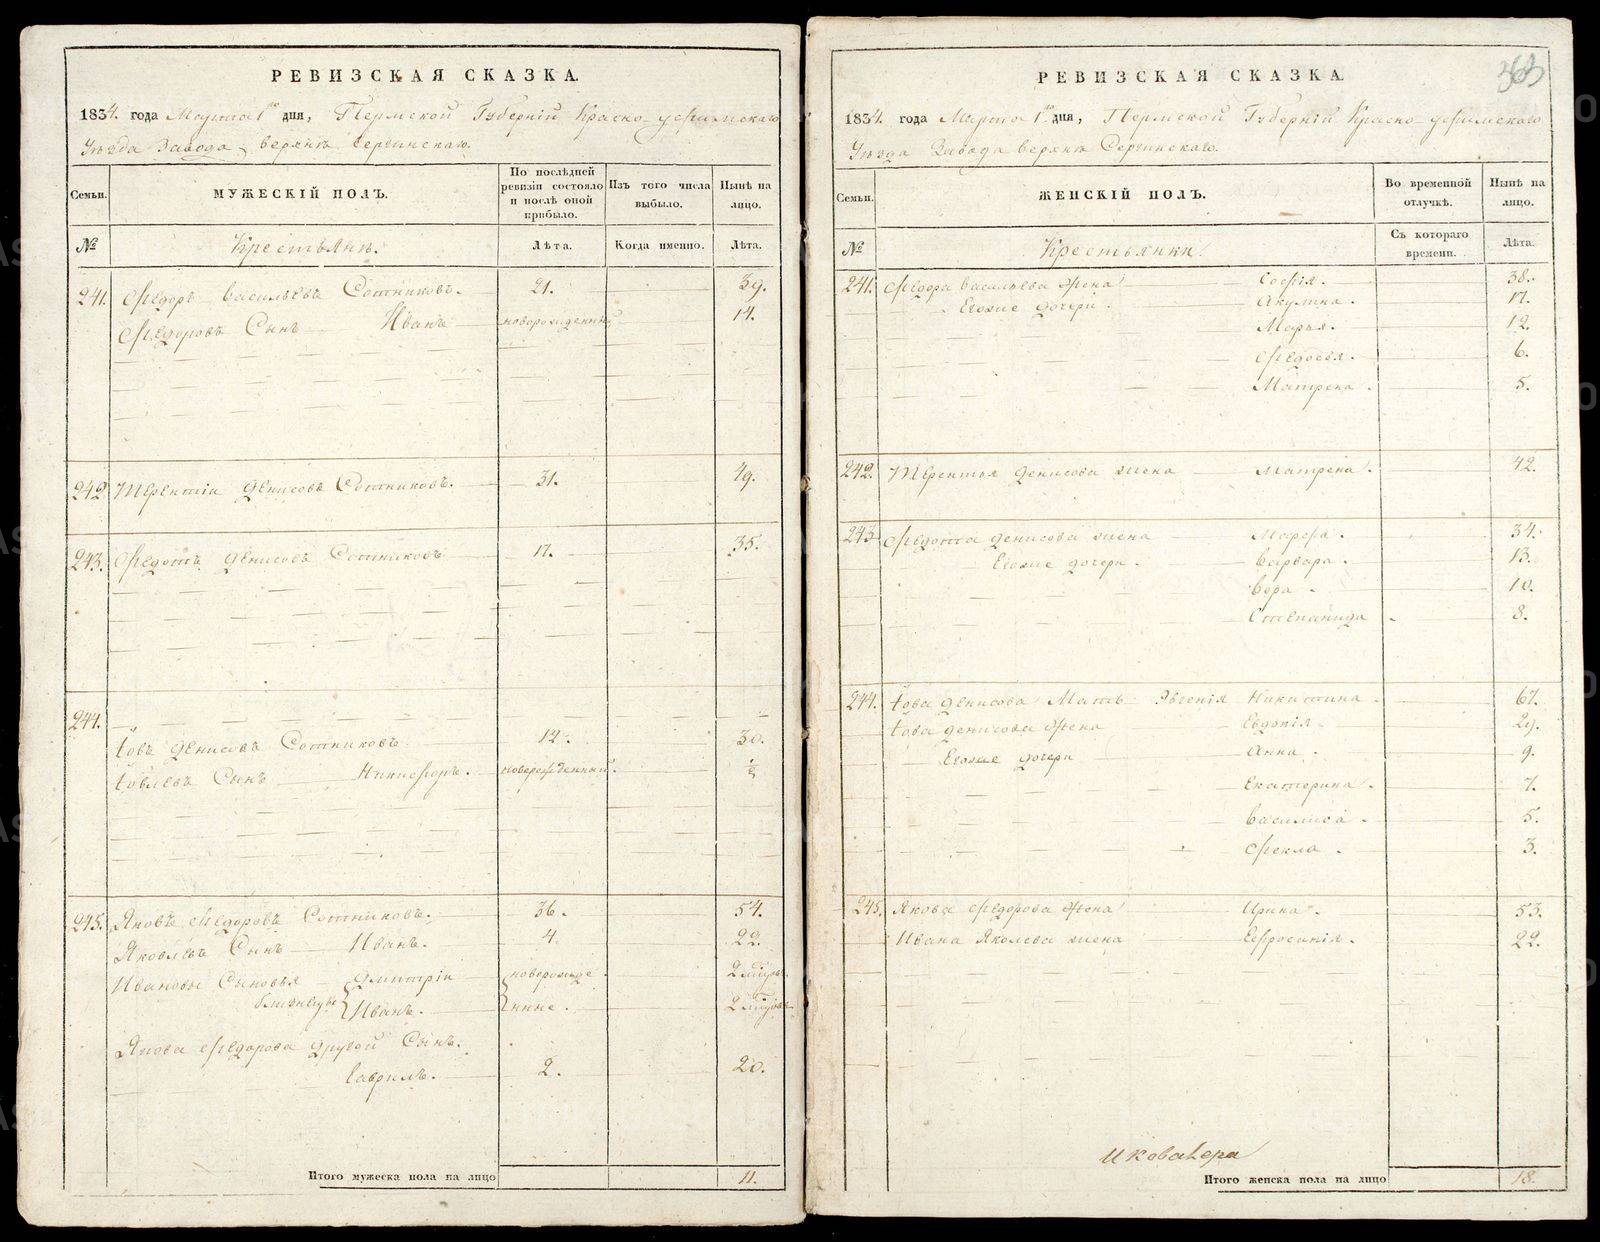 РЕВИЗСКАЯ СКАЗКА.
1834. года Марта 1го дня, Пермской Губернiи Красно-уфимскаго
Уѣзда Завода Верхне Сергинскаго.
Семьи. МУЖЕСКІЙ ПОЛЪ. По послѣдней ревизіи состояло и послѣ оной прибыло. Изъ того числа выбыло. Нынѣ на лицо.
№ Крестьяне. Лѣта. Когда именно. Лѣта.
241. Ѳедоръ Васильевъ Сотниковъ. 21. 39.
Ѳедоровъ Сынъ Иванъ новорожденный 14.
242 Терентiи Денисовъ Сотниковъ. 31. 49.
243. Ѳедотъ Денисовъ Сотниковъ 17. 35.
244.
Iовъ Денисовъ Сотниковъ 12. 30.
Iовлевъ Сынъ Никифоръ. новорожденный. ½
245. Яковъ Ѳедоровъ Сотниковъ. 36. 54.
Яковлевъ Сынъ Иванъ. 4. 22.
Ивановы Сыновья Дмитрiи новорожде 2
близнецы Иванъ. нные. 2
Якова Ѳедорова другой Сынъ.
Гаврилъ. 2. 20.
Итого мужеска пола на лицо 11.
363
РЕВИЗСКАЯ СКАЗКА.
1834. года Марта 1го дня, Пермской Губернiи Красно-уфимскаго
Уѣзда Завода Верхне Сергинскаго.
Семьи. ЖЕНСКІЙ ПОЛЪ. Во временной отлучкѣ. Нынѣ на лицо.
№ Крестьянки. Съ котораго времени. Лѣта.
241. Ѳедора Васильева Жена Софiя. 38.
Егоже дочери Акулина. 17.
Марья. 12.
Ѳедосья. 6.
Матрена. 5.
242. Терентья Денисова жена Матрена. 42.
243 Ѳедота Денисова жена Марфа. 34.
Егоже дочери. Варвара. 13.
Вера. 10.
Степанида 8.
244. Iова Денисова Мать Эвгенiя Никитина. 67.
Iова Денисова Жена Евдокiя 29.
Егоже дочери Анна. 9.
Екатерина. 7.
Василиса. 5.
Ѳекла. 3.
245. Якова Ѳедорова Жена Ирина. 53.
Ивана Яколева жена Ефросинiя. 22.
Итого женска пола на лицо 18.